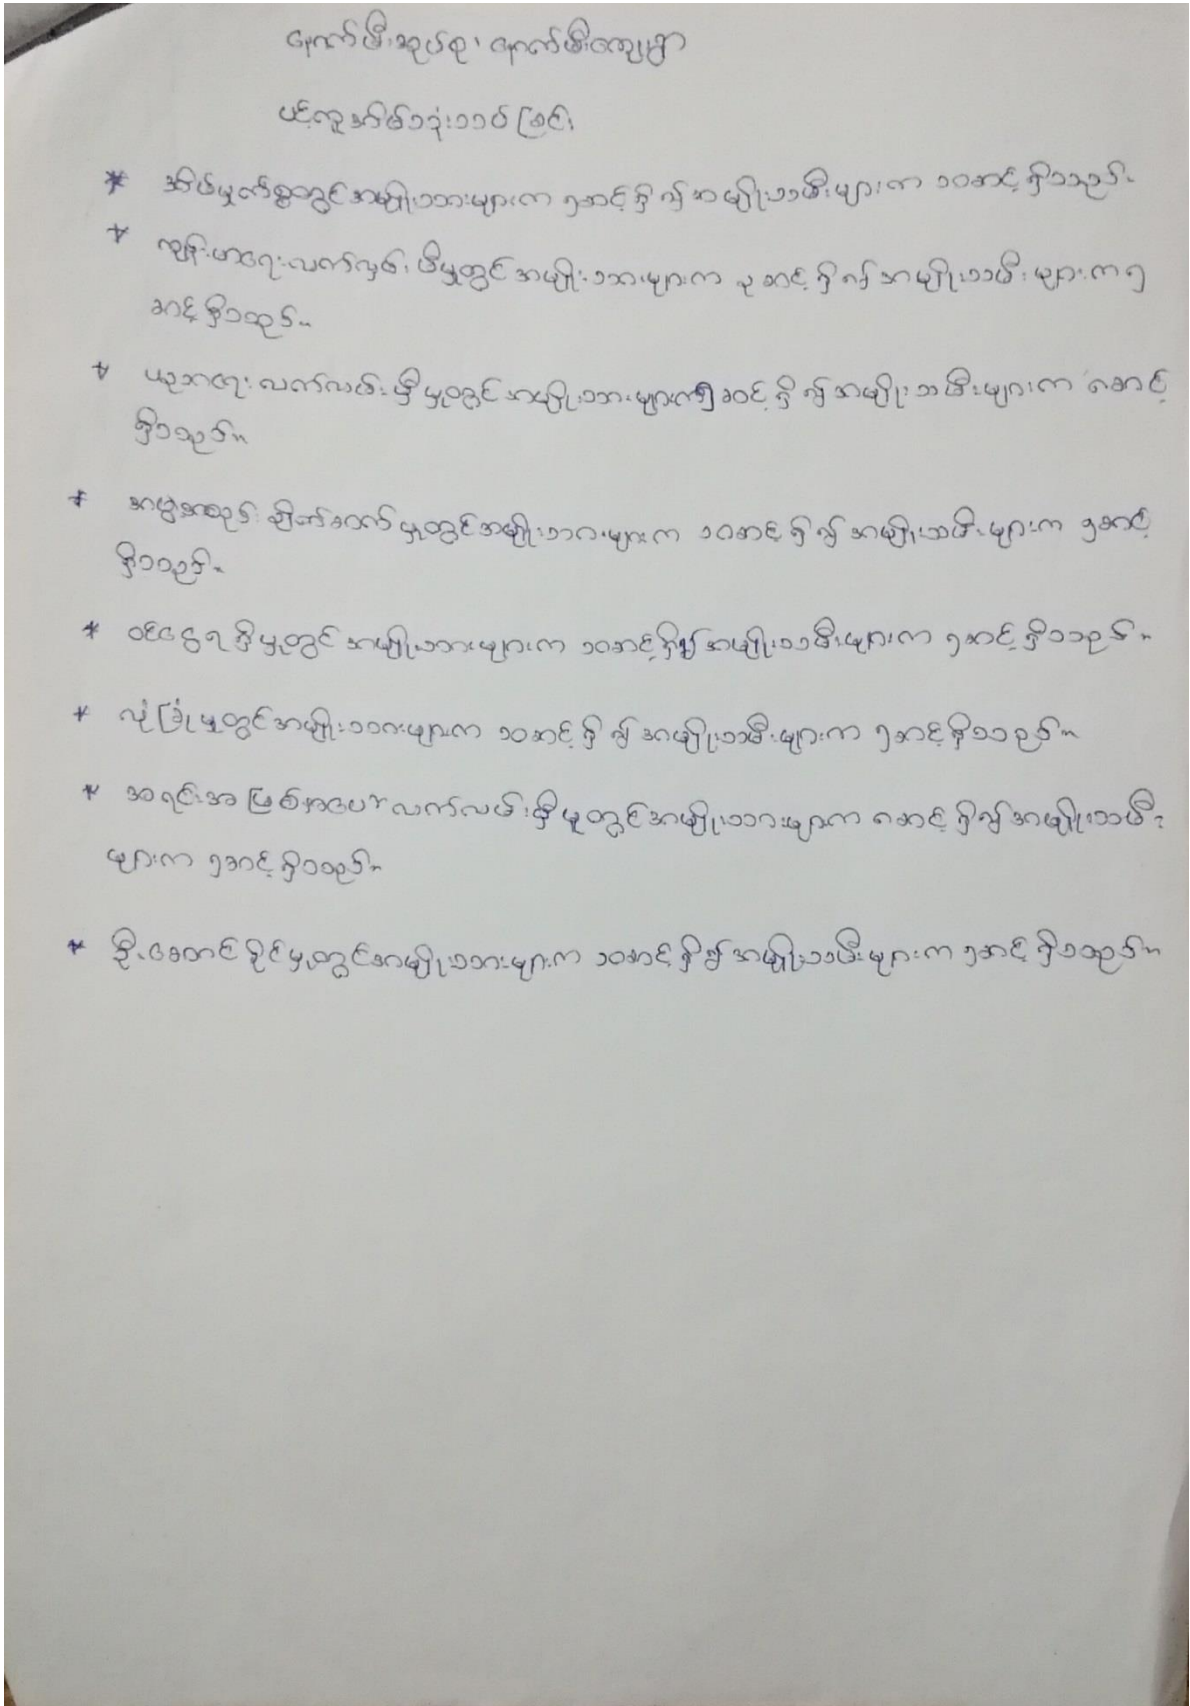 နောက်မီးအုပ်စု၊ နောက်မီးကျေးရွာ
ပင့်ကူအိမ်သုံးသပ်ခြင်း
* အိမ်မှုကိစ္စတွင်အမျိုးသားများက ၅ဆင့်ရှိ၍အမျိုးသမီးများက ၁၀ဆင့်ရှိသည်။
* ကျန်းမာရေးလက်လှမ်းမီမှုတွင်အမျိုးသားများက ၃ဆင့်ရှိ၍အမျိုးသမီးများက ၅
ဆင့်ရှိသည်။
* ပညာရေးလက်လမ်းမှီမှုတွင်အမျိုးသားများက၅ဆင့်ရှိ၍အမျိုးသမီးများက ၈ဆင့်
ရှိသည်။
* အဖွဲ့အစည်းချိတ်ဆက်မှုတွင်အမျိုးသားများက ၁၀ဆင့်ရှိ၍အမျိုးသမီးများက ၅ဆင့်
ရှိသည်။
* ဝင်ငွေရရှိမှုတွင်အမျိုးသားများက ၁၀ဆင့်ရှိ၍အမျိုးသမီးများက ၅ဆင့်ရှိသည်။
* လုံခြုံမှုတွင်အမျိုးသားများက ၁၀ဆင့်ရှိ၍အမျိုးသမီးများက ၅ဆင့်ရှိသည်။
* အရင်းအမြစ်အပေါ်လက်လမ်းမှီမှုတွင်အမျိုးသားများက ၈ဆင့်ရှိ၍အမျိုးသမီး
များက ၅ဆင့်ရှိသည်။
* ဦးဆောင်နိုင်မှုတွင်အမျိုးသားများက ၁၀ဆင့်ရှိ၍အမျိုးသမီးများက ၅ဆင့်ရှိသည်။